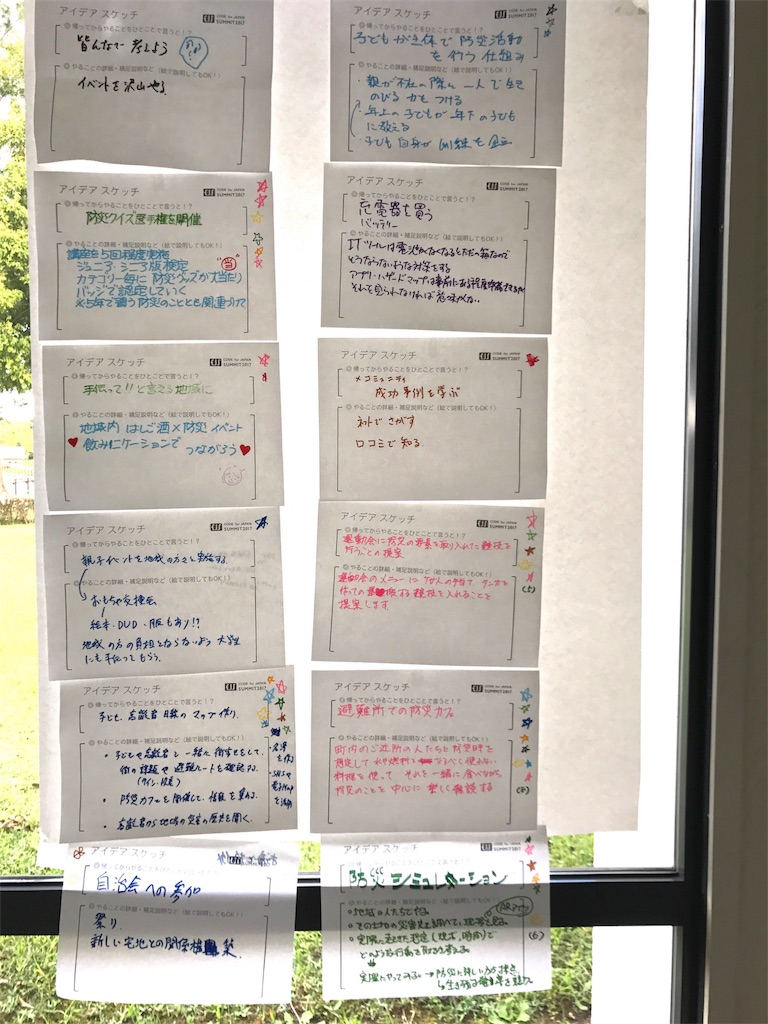 アイデア スケッチ
CODE for JAPAN
SUMMIT2017
帰ってからやることをひとことで言うと！？
皆んなで 考えよう
やることの詳細・補足説明など（絵で説明してもOK！）
イベントを沢山やる
アイデア スケッチ
CODE for JAPAN
SUMMIT2017
帰ってからやることをひとことで言うと！？
防災クイズ選手権を開催
やることの詳細・補足説明など（絵で説明してもOK！）
講座を5回程度実施
ジュニア・シニア版検定
"当"
カテゴリー毎に 防災グッズが当たり
バッジで認定していく
※5年で習う防災のこととも関連づけて
アイデア スケッチ
CODE for JAPAN
SUMMIT2017
帰ってからやることをひとことで言うと！？
手伝って!!と言える地域に
やることの詳細・補足説明など（絵で説明してもOK！）
地域内 はしご酒×防災イベント
飲みにケーションで
つながろう
アイデア スケッチ
CODE for JAPAN
SUMMIT2017
帰ってからやることをひとことで言うと！？
親子イベントを地域の方々と実施する
やることの詳細・補足説明など（絵で説明してもOK！）
おもちゃ交換会
絵本・DVD・服もあり!?
地域の方の負担とならないよう 大学生
にも手伝ってもらう。
アイデア スケッチ
CODE for JAPAN
SUMMIT2017
帰ってからやることをひとことで言うと！？
子ども、高齢者目線の マップ作り。
やることの詳細・補足説明など（絵で説明してもOK！）
・子どもや高齢者と一緒に街歩きをして、
街の課題や避難ルートを確認する。
・防災カフェを開催して、
・高齢者から地域の災害の歴史を聞く。
アイデア スケッチ
帰ってからやることをひとことで言うと！？
自治会への参加
やることの詳細・補足説明など（絵で説明してもOK！）
祭り
新しい宅地との関係構築
アイデア スケッチ
CODE for JAPAN
SUMMIT2017
帰ってからやることをひとことで言うと！？
子どもが主体で 防災活動
を 行う 仕組み
やることの詳細・補足説明など（絵で説明してもOK！）
・親が不在の際に 一人で生き
のびる 力を つける
・年上の子どもが 年下の子ども
に教える
・子ども自身が 訓練を 企画
アイデア スケッチ
CODE for JAPAN
SUMMIT2017
帰ってからやることをひとことで言うと！？
充電器を買う
バッテリー
やることの詳細・補足説明など（絵で説明してもOK！）
ITツールは電池がなくなるとただの箱なので
そうならないような対策をする
それを見られなければ意味がない
アイデア スケッチ
CODE for JAPAN
SUMMIT2017
帰ってからやることをひとことで言うと！？
コミュニティ
成功事例を学ぶ
やることの詳細・補足説明など（絵で説明してもOK！）
ネットで さがす
口コミで 知る
アイデア スケッチ
CODE for JAPAN
SUMMIT2017
帰ってからやることをひとことで言うと！？
運動会に防災の要素を取り入れた競技を
行うことの提案
やることの詳細・補足説明など（絵で説明してもOK！）
運動会のメニューに
作っての 競技を入れることを
提案します
(5)
アイデア スケッチ
CODE for JAPAN
SUMMIT2017
帰ってからやることをひとことで言うと！？
避難所での防災カフェ
やることの詳細・補足説明など（絵で説明してもOK！）
町内のご近所の人たちと防災時を
想定して 水や燃料を なるべく使わない
料理を使って それを 一緒に 食べながら
防災のことを 中心に 楽しく 雑談する
(8)
CODE for JAPAN
SUMMIT2017
防災 シミュレーション
やることの詳細・補足説明など（絵で説明してもOK！）
・地域の人たちとやる
・その土地の災害史を調べて、
(6)